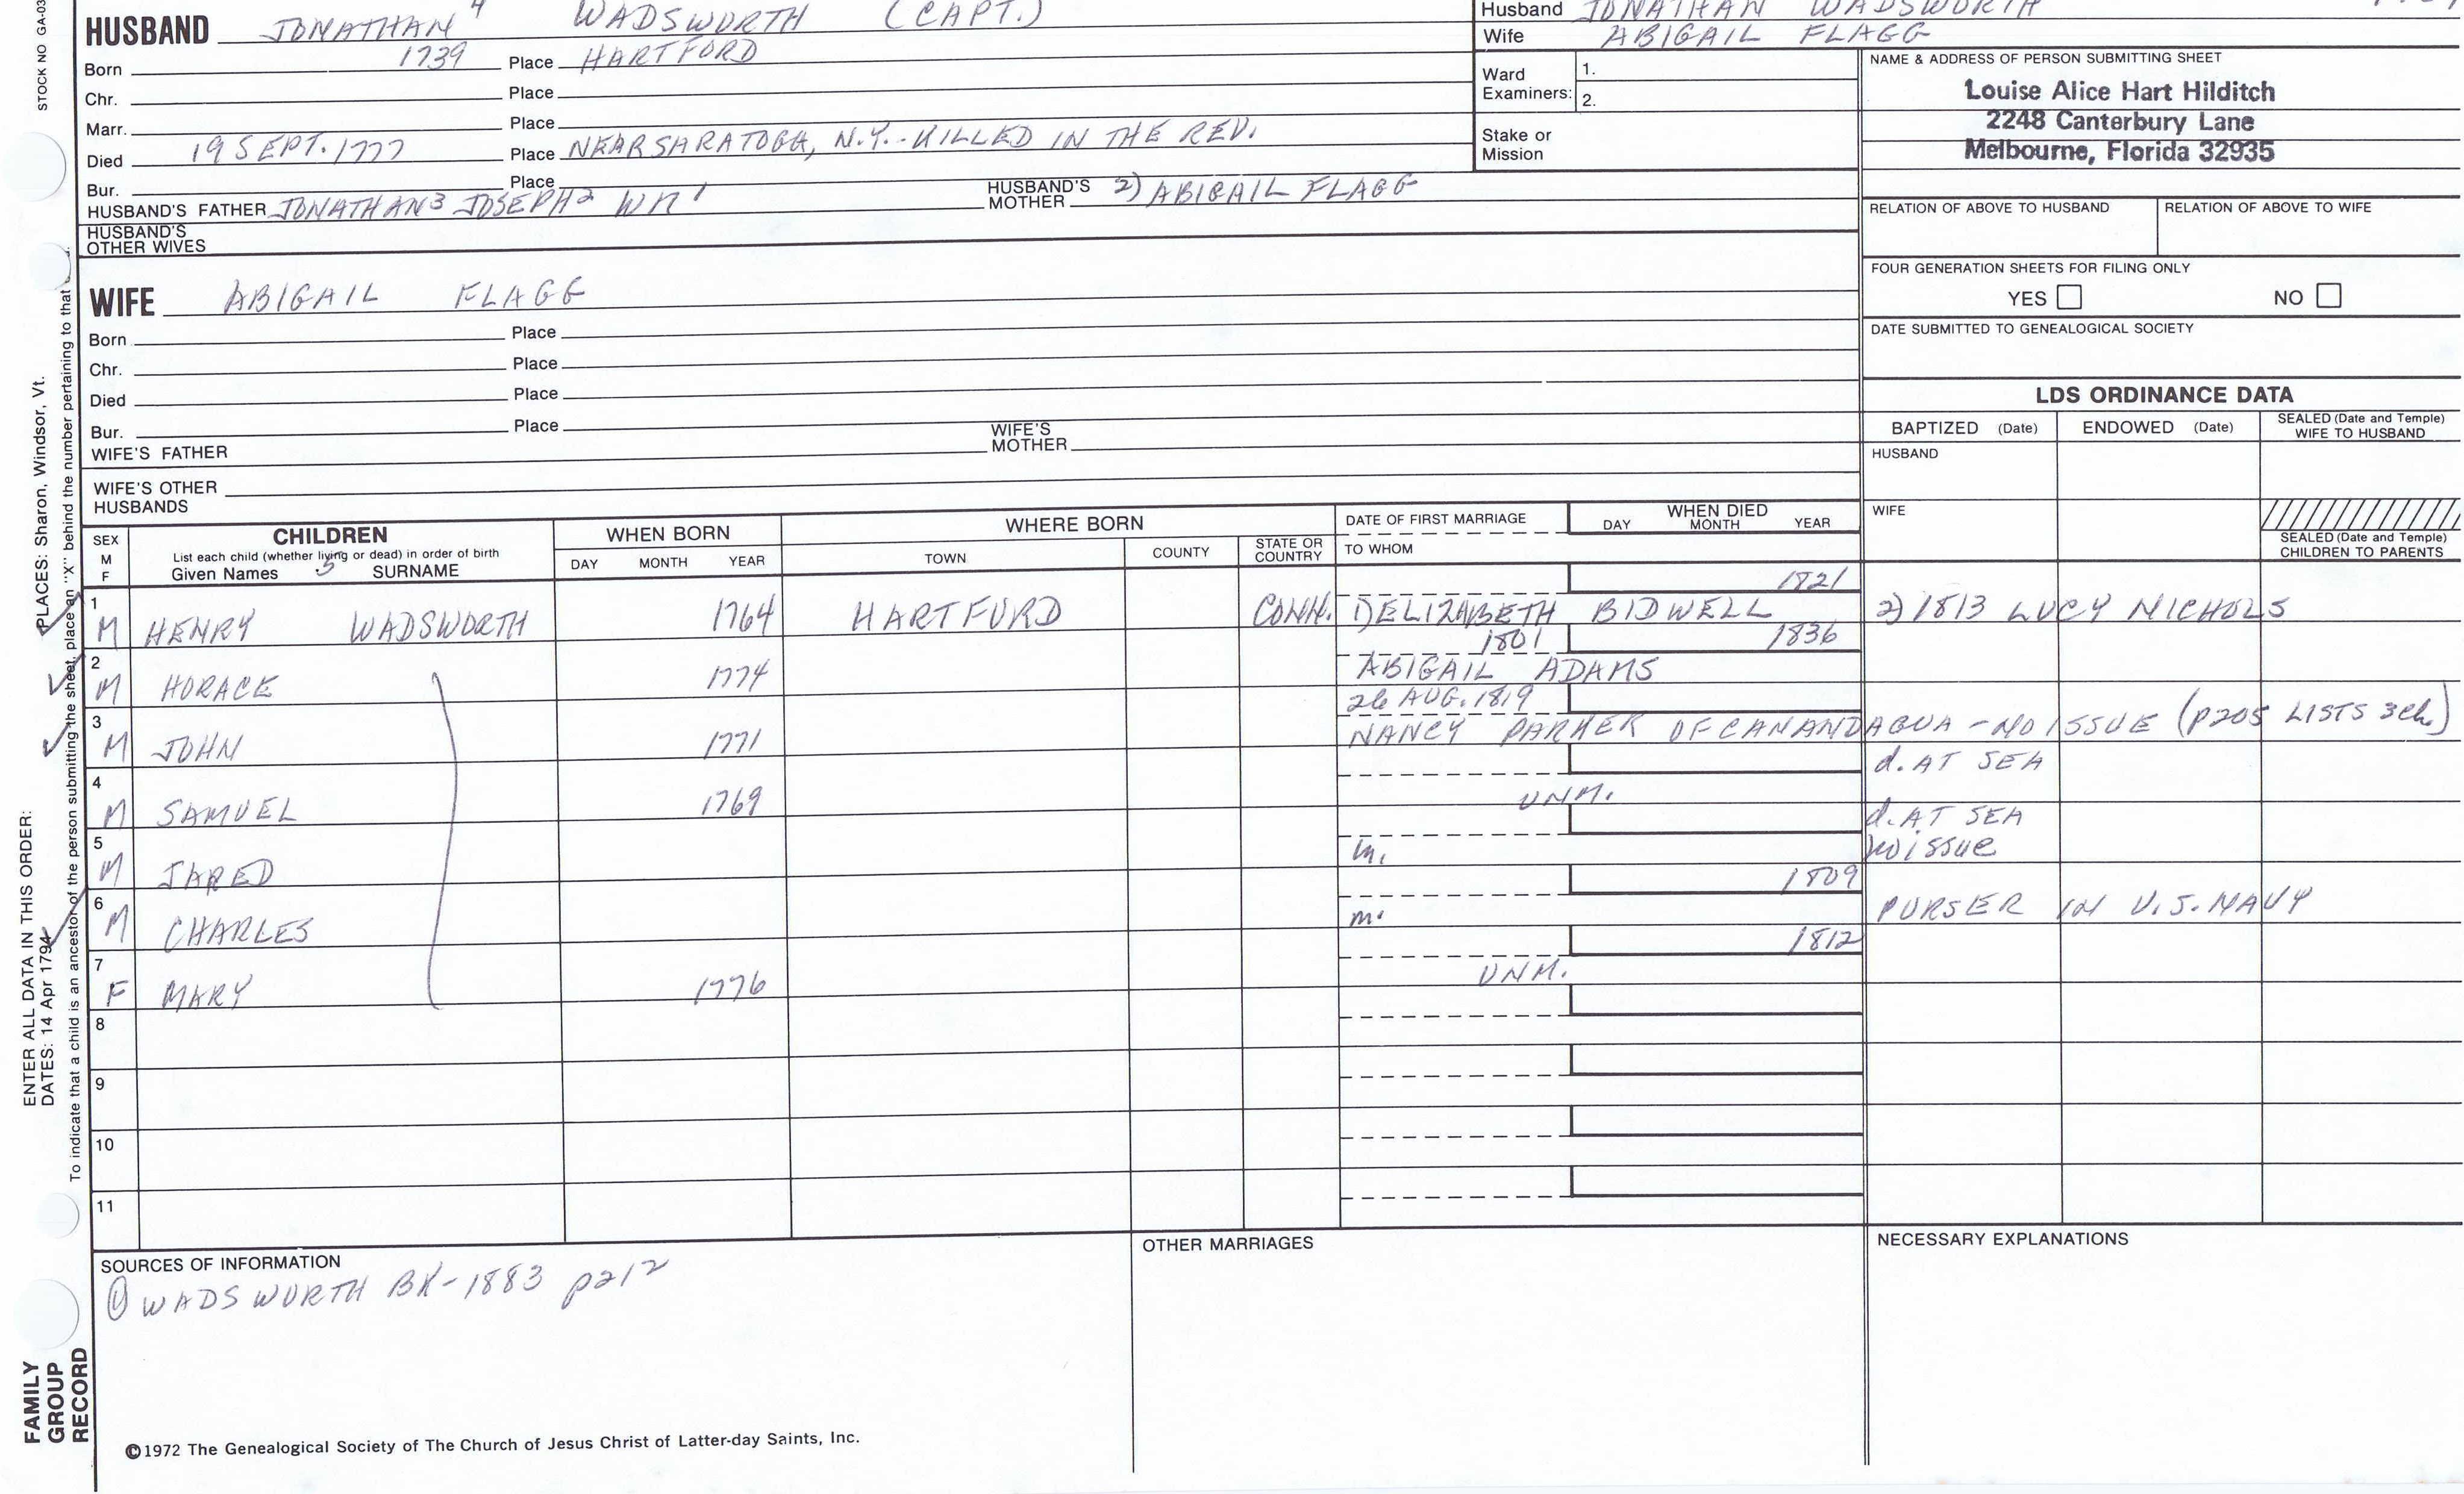 STOCK NO GA-03
HUSBAND JONATHAN 4 WADSWORTH (CAPT.)
Husband JONATHAN WADSWORTH
Wife ABIGAIL FLAGG
Born 1739 Place HARTFORD
Chr. Place
Marr. Place
Died 19 SEPT. 1777 Place NEAR SARATOGA, N.Y. - KILLED IN THE REV.
Bur. Place
HUSBAND'S FATHER JONATHAN3 JOSEPH2 WM1 HUSBAND'S MOTHER 2) ABIGAIL FLAGG
HUSBAND'S
OTHER WIVES
Ward
Examiners:
1.
2.
Stake or
Mission
NAME & ADDRESS OF PERSON SUBMITTING SHEET
Louise Alice Hart Hilditch
2248 Canterbury Lane
Melbourne, Florida 32935
RELATION OF ABOVE TO HUSBAND RELATION OF ABOVE TO WIFE
FOUR GENERATION SHEETS FOR FILING ONLY
YES NO
DATE SUBMITTED TO GENEALOGICAL SOCIETY
WIFE ABIGAIL FLAGG
Born Place
Chr. Place
Died Place
Bur. Place
WIFE'S FATHER WIFE'S MOTHER
WIFE'S OTHER
HUSBANDS
LDS ORDINANCE DATA
BAPTIZED (Date) ENDOWED (Date) SEALED (Date and Temple) WIFE TO HUSBAND
HUSBAND
WIFE
SEALED (Date and Temple)
CHILDREN TO PARENTS
SEX M F
CHILDREN
List each child (whether living or dead) in order of birth
Given Names 5 SURNAME
WHEN BORN
DAY MONTH YEAR
WHERE BORN
TOWN COUNTY STATE OR COUNTRY
DATE OF FIRST MARRIAGE
TO WHOM
WHEN DIED
DAY MONTH YEAR
1821
1 M HENRY WADSWORTH 1764 HARTFORD CONN. 1) ELIZABETH BIDWELL 2) 1813 LUCY NICHOLS
1801 1836
2 M HORACE 1774 ABIGAIL ADAMS
26 AUG. 1819
3 M JOHN 1771 NANCY PARKER OF CANANDAGUA - NO ISSUE (p205 LISTS 3 ch.)
d. AT SEA
4 M SAMUEL 1769 UNM.
d. AT SEA
5 M JARED m. no issue
1809
6 M CHARLES m. PURSER IN U.S. NAVY
1812
7 F MARY 1776 UNM.
8
9
10
11
SOURCES OF INFORMATION
① WADSWORTH BK - 1883 p212
OTHER MARRIAGES
NECESSARY EXPLANATIONS
©1972 The Genealogical Society of The Church of Jesus Christ of Latter-day Saints, Inc.
FAMILY
GROUP
RECORD
ENTER ALL DATA IN THIS ORDER:
DATES: 14 Apr 1794
PLACES: Sharon, Windsor, Vt.
To indicate that a child is an ancestor of the person submitting the sheet, place an "X" behind the number pertaining to that